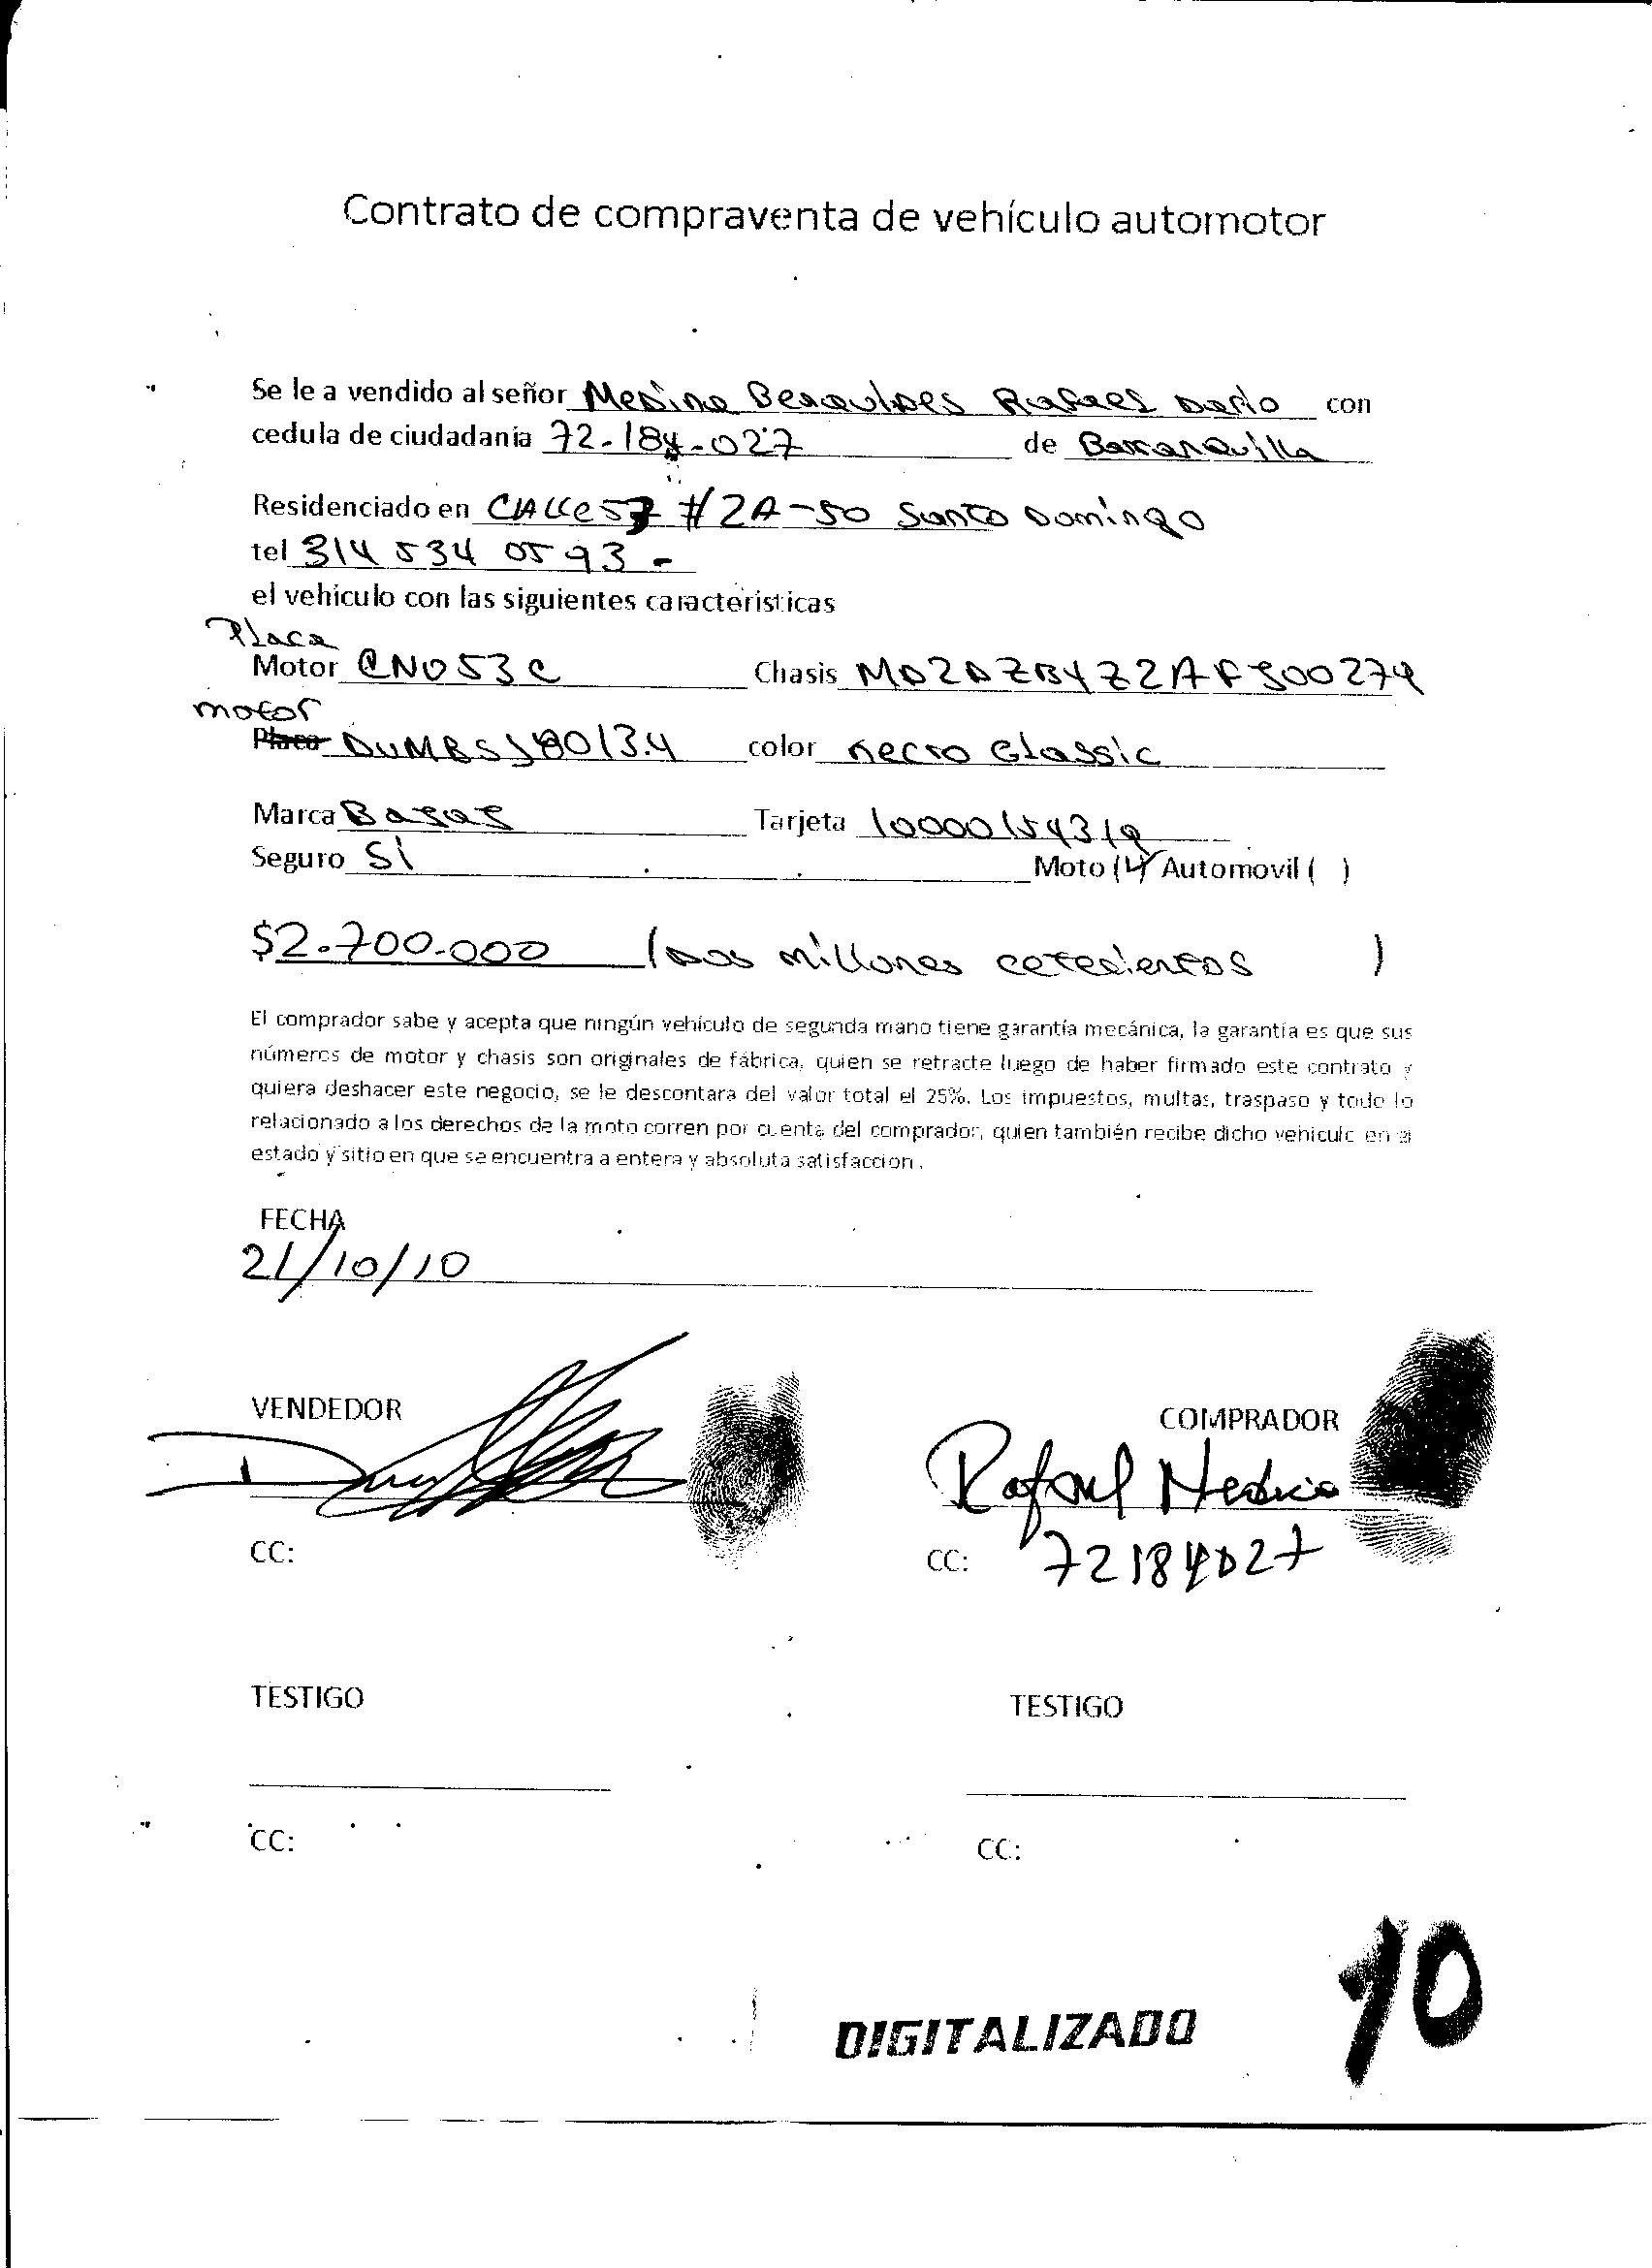 Contrato de compraventa de vehículo automotor
Se le a vendido al señor Medina Rafael Dario con
cedula de ciudadania 72.184.027 de Barranquilla
Residenciado en CALLe 57 #2A-50 Santo Domingo
tel 314 534 0593 -
el vehiculo con las siguientes caracteristicas
Placa
Motor CNO53C Chasis MD2DZB4Z2AFJ00274
motor
Placa color negro Classic
Marca Bajaj Tarjeta 10000154319
Seguro Si Moto ( ) Automovil ( )
$2.700.000 (Dos millones )
El comprador sabe y acepta que ningún vehículo de segunda mano tiene garantía mecánica, la garantía es que sus
números de motor y chasis son originales de fábrica, quien se retracte luego de haber firmado este contrato y
quiera deshacer este negocio, se le descontara del valor total el 25%. Los impuestos, multas, traspaso y todo lo
relacionado a los derechos de la moto corren por cuenta del comprador, quien también recibe dicho vehiculo en el
estado y sitio en que se encuentra a entera y absoluta satisfaccion.
FECHA
21/10/10
VENDEDOR COMPRADOR
Rafael Medina
CC: CC: 72184027
TESTIGO TESTIGO
CC: CC:
DIGITALIZADO 10